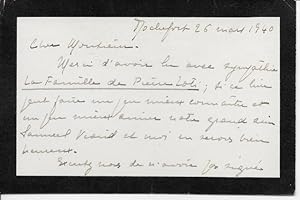 Rochefort 26 mars 1940
Cher Monsieur.
Merci d'avoir lu avec sympathie
La Famille de Pierre Loti; si ce livre
peut faire un peu mieux connaître et
un peu mieux aimer notre grand ami
Samuel Viaud et moi en serons bien
heureux.
Excusez nous de n'avoir pas signé